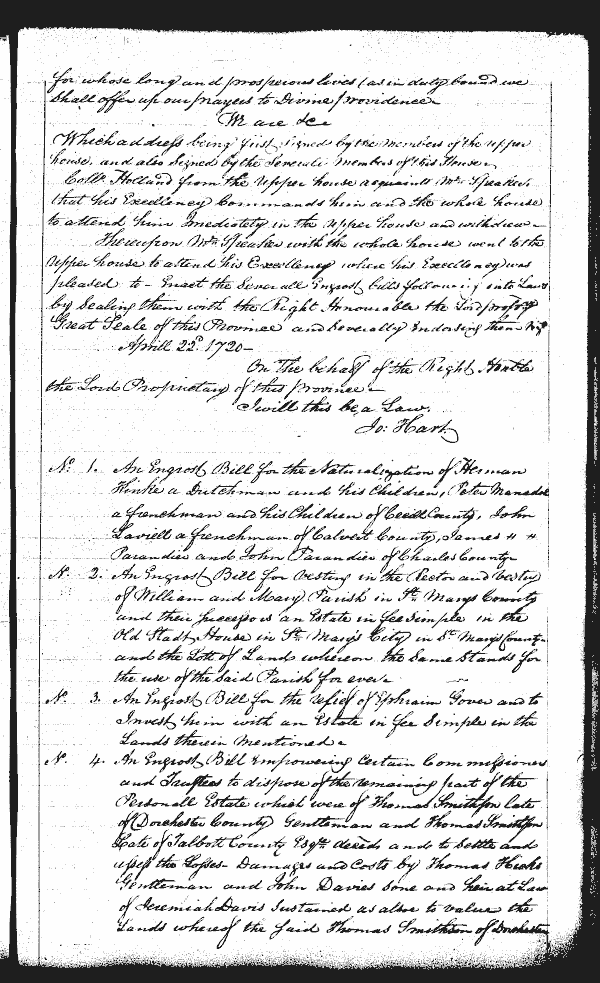 for whose long and prosperous lives (as in duty bound we
Shall offer up our prayers to Divine providence
We are &c
Which address being first signed by the members of the upper
house, and also Signed by the Severall members of this House
Collo. Holland from the Upper house acquaints Mr. Speaker,
that his Excellency Commands him and the whole house
to attend him Imediately in the upper house and withdrew
Thereupon Mr. Speaker with the whole house went to the
upper house to attend his Excellency where his Excellency was
pleased to Enact the Severall Engrost bills following into Laws
by Sealing them with the Right Honourable the Lord propry
Great Seale of this Province and Severally Endorsing them
Aprill 22d. 1720
On the behalf of the Right Honble
the Lord Proprietary of this province
I will this be a Law.
Jo: Hart
No. 1. An Engrost Bill for the Naturalization of Herman
Kinke a Dutchman and his Children, Peter
a frenchman and his Children of Cecill County, John
Laviell a frenchman of Calvert County, James " "
Parandier and John Parandier of Charles County
N. 2. An Engrost Bill for vesting in the Rector and Vestry
of William and Mary Parish in St. Marys County
and their successors an Estate in fee Simple in the
Old Stadt House in St. Mary's City in St. Marys County
and the Lott of Land whereon the Same Stands for
the use of the Said Parish for ever
N. 3. An Engrost Bill for the relief of Ephraim Gover and to
Invest him with an Estate in fee Simple in the
Lands therein Mentioned
N. 4. An Engrost Bill Empowering Certain Commissioners
and Trustees to dispose of the remaining part of the
Personall Estate which were of Thomas Smithson late
of Dorchester County Gentleman and Thomas Smithson
Late of Talbott County Esqr. deced. and to Settle and
assess the Losses Damages and Costs by Thomas Hicks
Gentleman and John Davies Sone and heir at Law
of Jeremiah Davis Sustained as alsoe to value the
Lands whereof the said Thomas Smithson of Dorchester